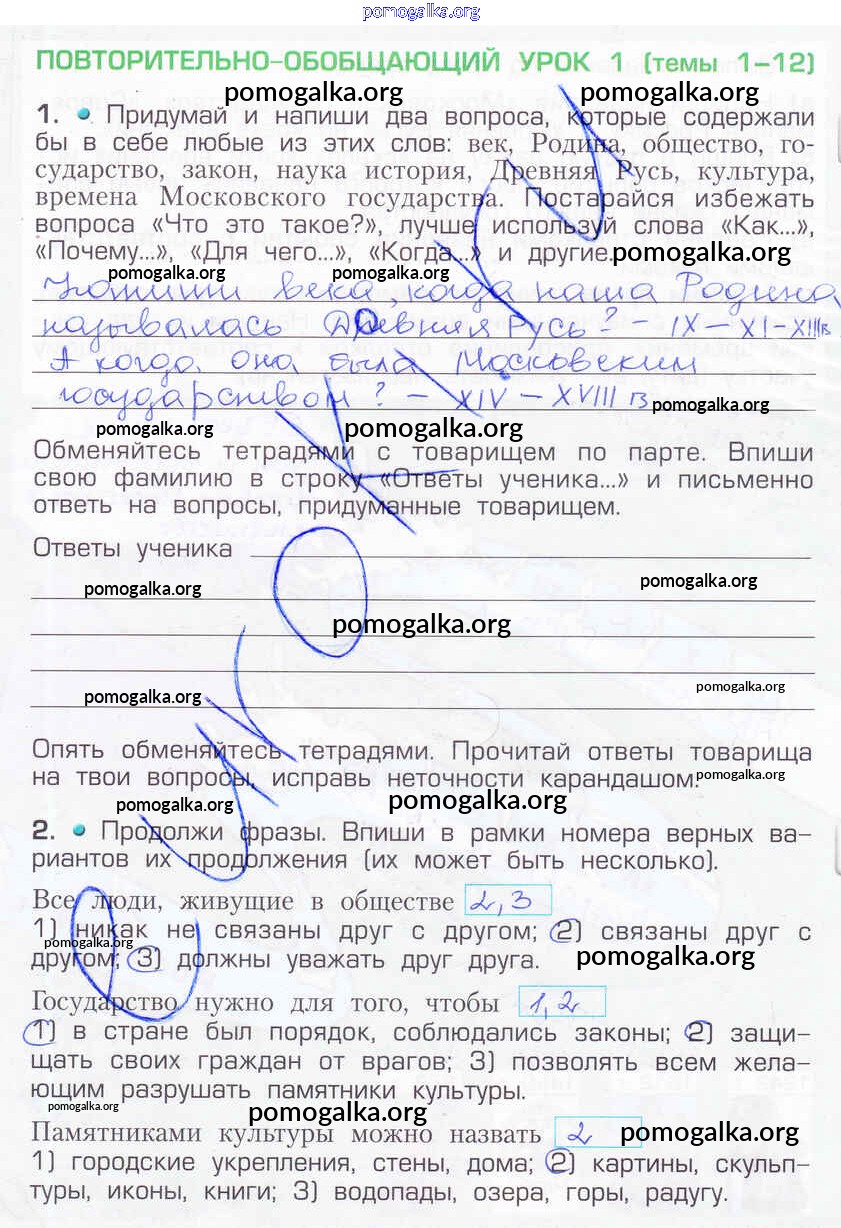 pomogalka.org
ПОВТОРИТЕЛЬНО-ОБОБЩАЮЩИЙ УРОК 1 (темы 1–12)
pomogalka.org pomogalka.org
1. • Придумай и напиши два вопроса, которые содержали
бы в себе любые из этих слов: век, Родина, общество, го-
сударство, закон, наука история, Древняя Русь, культура,
времена Московского государства. Постарайся избежать
вопроса «Что это такое?», лучше используй слова «Как...»,
«Почему...», «Для чего...», «Когда...» и другие.
pomogalka.org
pomogalka.org pomogalka.org
века, когда наша Родина
называлась Древняя Русь? – IX – XI–XIII в
А когда она была Московским
государством? – XIV – XVIII в
pomogalka.org
pomogalka.org pomogalka.org
Обменяйтесь тетрадями с товарищем по парте. Впиши
свою фамилию в строку «Ответы ученика...» и письменно
ответь на вопросы, придуманные товарищем.
Ответы ученика
pomogalka.org pomogalka.org
pomogalka.org
pomogalka.org pomogalka.org
Опять обменяйтесь тетрадями. Прочитай ответы товарища
на твои вопросы, исправь неточности карандашом.
pomogalka.org
pomogalka.org pomogalka.org
2. • Продолжи фразы. Впиши в рамки номера верных ва-
риантов их продолжения (их может быть несколько).
Все люди, живущие в обществе 2,3
1) никак не связаны друг с другом; 2) связаны друг с
pomogalka.org
другом; 3) должны уважать друг друга.
pomogalka.org
Государство нужно для того, чтобы 1,2
1) в стране был порядок, соблюдались законы; 2) защи-
щать своих граждан от врагов; 3) позволять всем жела-
ющим разрушать памятники культуры.
pomogalka.org pomogalka.org
Памятниками культуры можно назвать 2
pomogalka.org
1) городские укрепления, стены, дома; 2) картины, скульп-
туры, иконы, книги; 3) водопады, озера, горы, радугу.